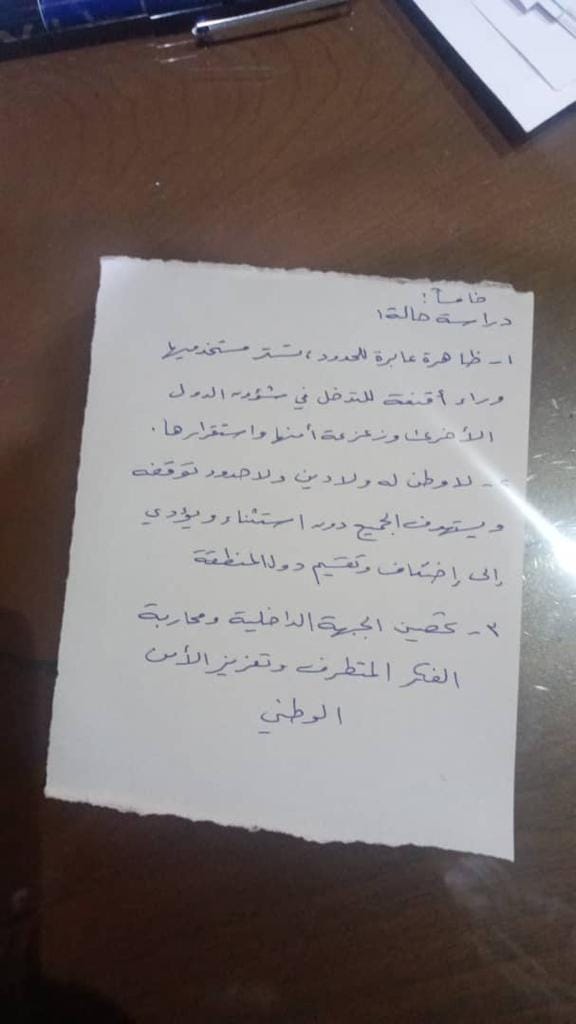 خامساً:
دراسة حالة ١
١- ظاهرة عابرة للحدود، تستر مستخدميها
وراء أقنعة للتدخل في شؤون الدول
الأخرى وزعزعة أمنها واستقرارها.
٢- لا وطن له ولا دين ولا حدود توقفه
ويستهدف الجميع دون استثناء ويؤدي
إلى إضعاف وتقسيم دول المنطقة
٣- تحصين الجبهة الداخلية ومحاربة
الفكر المتطرف وتعزيز الأمن
الوطني